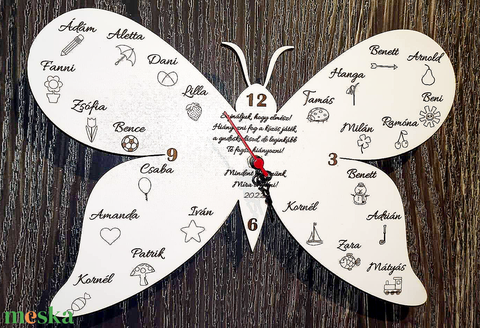 Ádám
Aletta
Fanni
Dani
Zsófia
Lilla
Bence
Benett
Arnold
Hanga
Tamás
Beni
Milán
Ramóna
12
9
3
6
Sajnáljuk, hogy elmész!
Hiányozni fog a közös játék,
Te fogsz hiányozni!
Mindent köszönünk
Míra néni!
Csaba
Amanda
Iván
Patrik
Kornél
Benett
Kornél
Adrián
Zara
Mátyás
meska